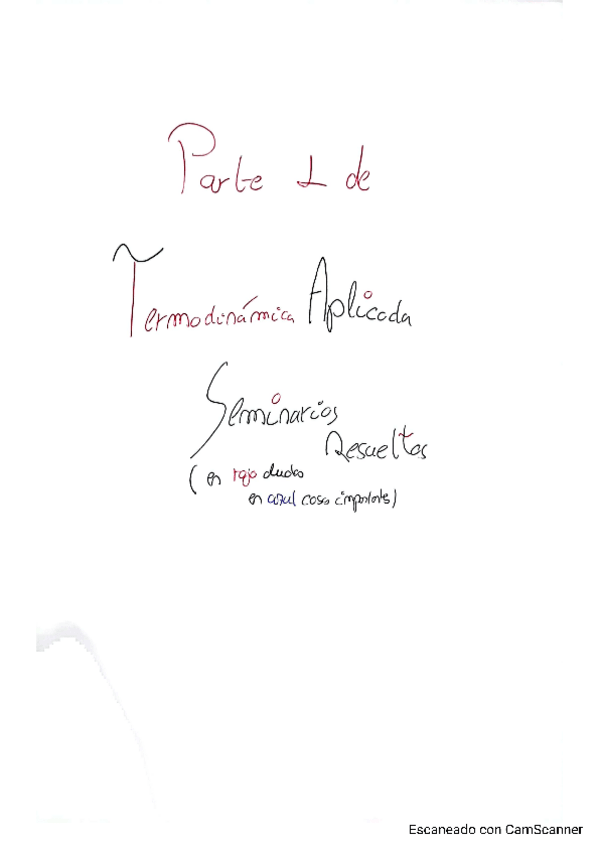 Parte 1 de
Termodinámica Aplicada
Seminarios
Resueltos
(en rojo dudas
en azul cosas importantes)
Escaneado con CamScanner